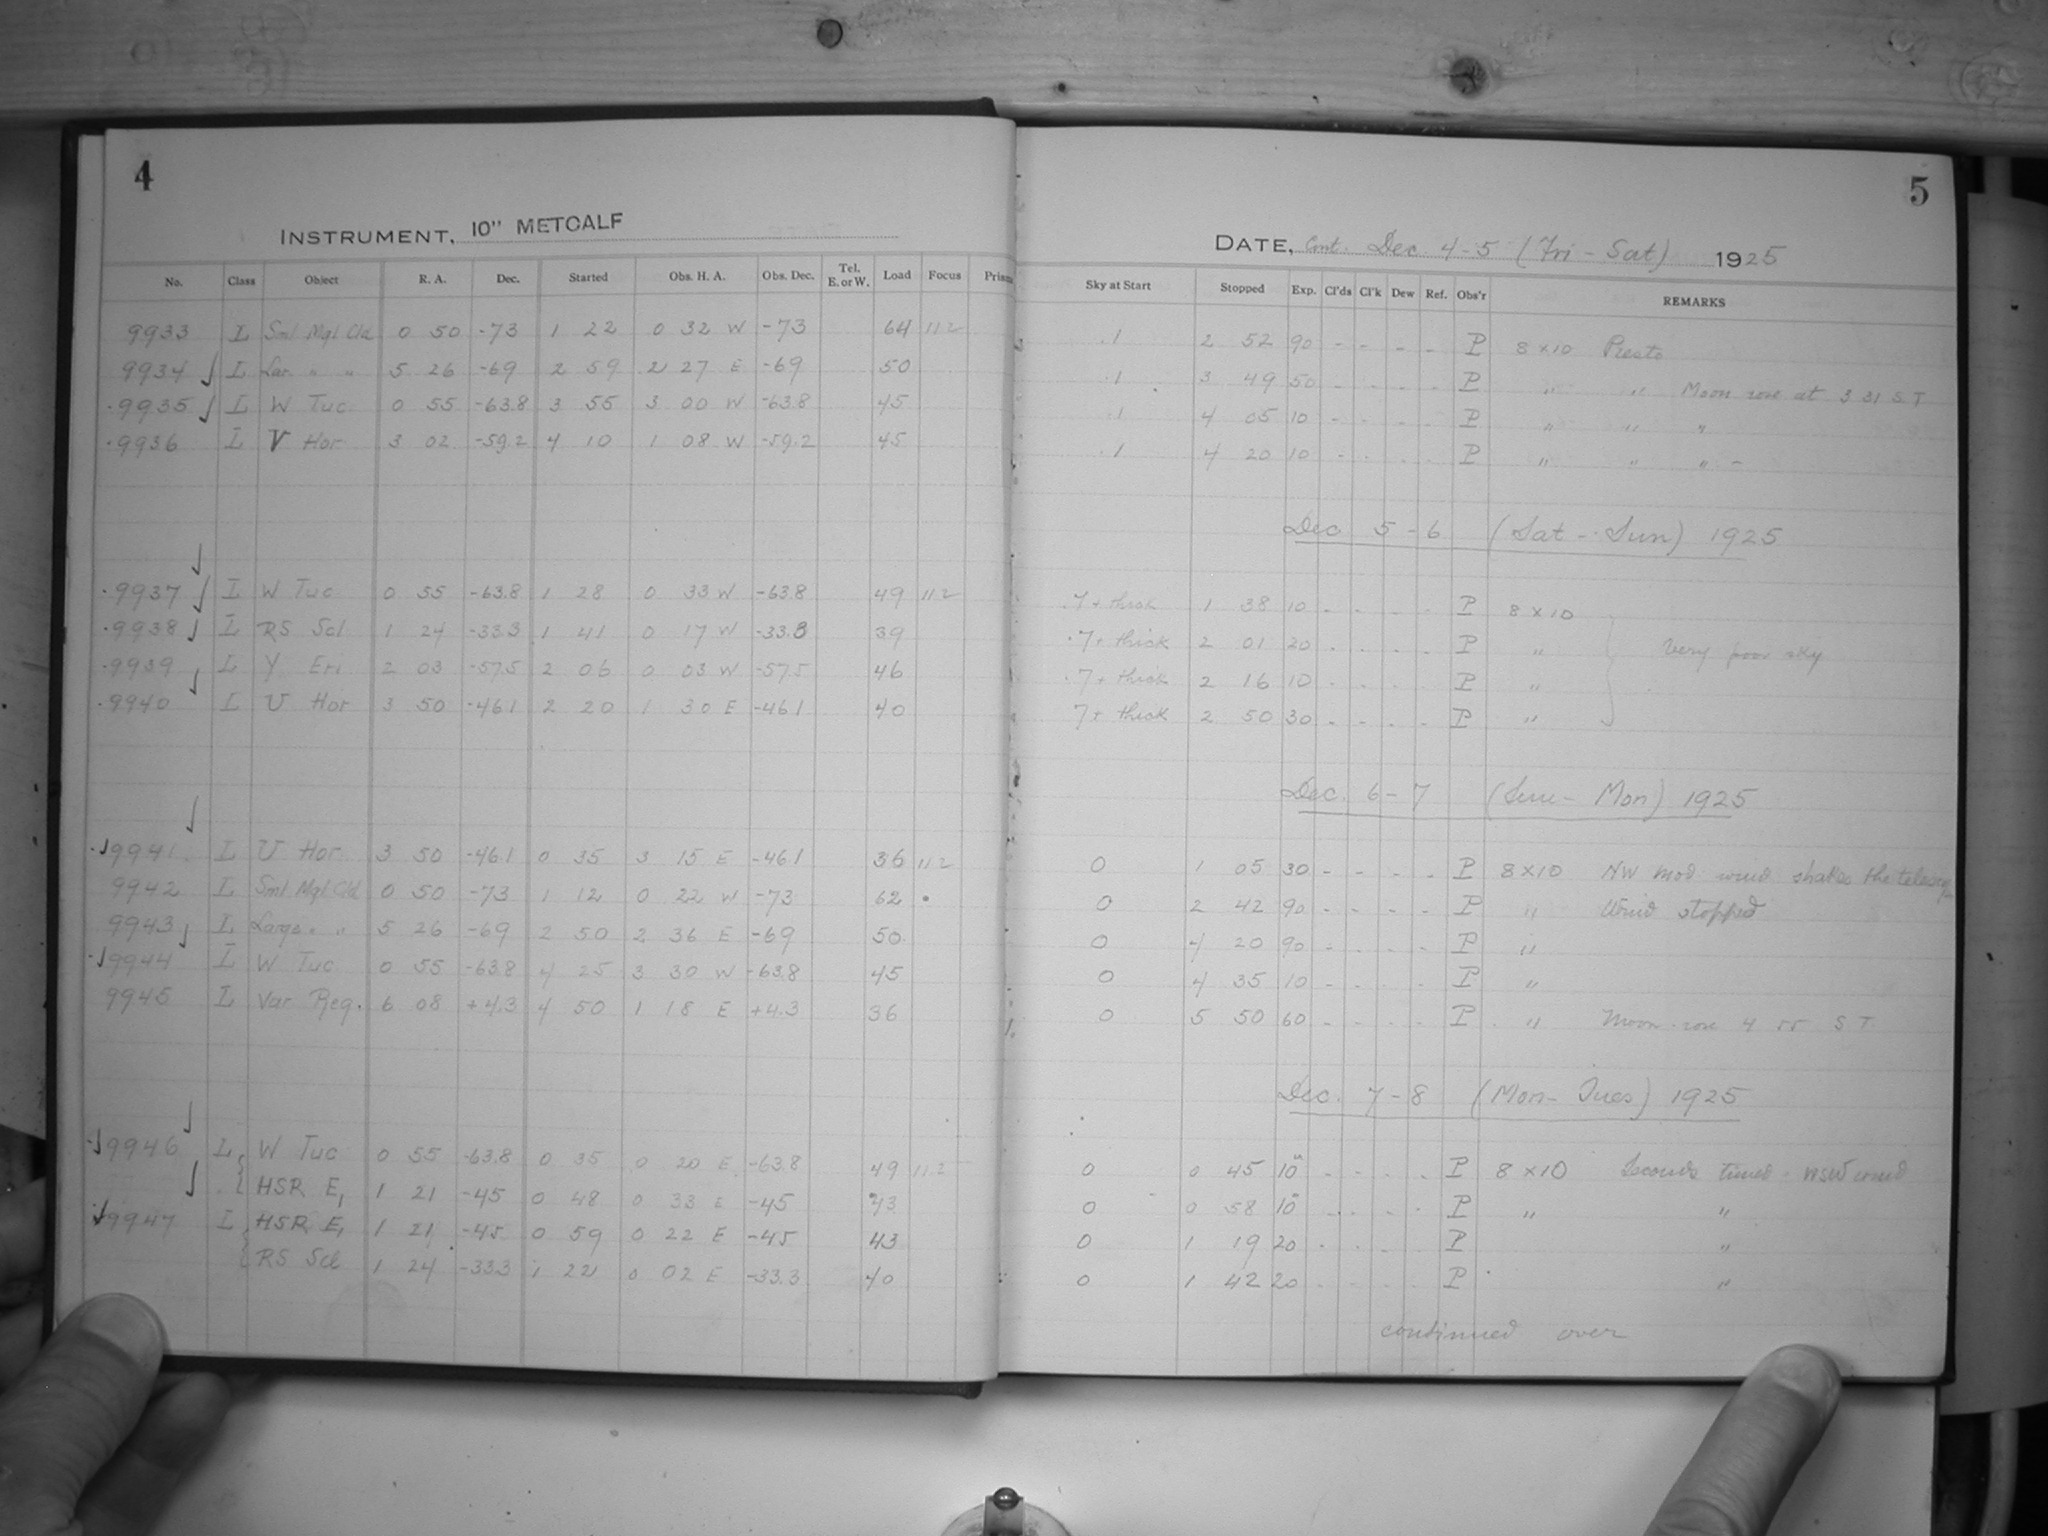 4
INSTRUMENT, 10" METCALF
No. Class Object R. A. Dec. Started Obs. H. A. Obs. Dec. Tel. E. or W. Load Focus Prism
9933 L Sml Mgl Cld 0 50 -73 1 22 0 32 W -73 64 11.2
9934 L Lar. " " 5 26 -69 2 59 2 27 E -69 50
9935 L W Tuc 0 55 -63.8 3 55 3 00 W -63.8 45
9936 L V Hor 3 02 -59.2 4 10 1 08 W -59.2 45
9937 L W Tuc 0 55 -63.8 1 28 0 33 W -63.8 49 11.2
9938 L RS Scl 1 24 -33.3 1 41 0 17 W -33.3 39
9939 L Y Eri 2 03 -57.5 2 06 0 03 W -57.5 46
9940 L U Hor 3 50 -46.1 2 20 1 30 E -46.1 40
9941 L U Hor 3 50 -46.1 0 35 3 15 E -46.1 36 11.2
9942 L Sml Mgl Cld 0 50 -73 1 12 0 22 W -73 62
9943 L Large " " 5 26 -69 2 50 2 36 E -69 50
9944 L W Tuc 0 55 -63.8 4 25 3 30 W -63.8 45
9945 L Var Reg. 6 08 +4.3 4 50 1 18 E +4.3 36
9946 L W Tuc 0 55 -63.8 0 35 0 20 E -63.8 49 11.2
HSR E, 1 21 -45 0 48 0 33 E -45 43
9947 L HSR E, 1 21 -45 0 59 0 22 E -45 43
RS Scl 1 24 -33.3 1 22 0 02 E -33.3 40
5
DATE, Cont. Dec. 4-5 (Fri - Sat) 1925
Sky at Start Stopped Exp. Cl'ds Cl'k Dew Ref. Obs'r REMARKS
.1 2 52 90 - - - - P 8 x 10 Presto
.1 3 49 50 - - - - P " " Moon rose at 3 31 S T
.1 4 05 10 - - - - P " " "
.1 4 20 10 - - - - P " " " -
Dec. 5 - 6 (Sat - Sun) 1925
.7+ thick 1 38 10 - - - - P 8 x 10
.7+ thick 2 01 20 - - - - P " Very poor sky
.7+ thick 2 16 10 - - - - P "
7+ thick 2 50 30 - - - - P "
Dec. 6 - 7 (Sun - Mon) 1925
0 1 05 30 - - - - P 8 x 10 NW mod wind shakes the telescop
0 2 42 90 - - - - P " Wind stopped
0 4 20 90 - - - - P "
0 4 35 10 - - - - P "
0 5 50 60 - - - - P " Moon rose 4 55 S T
Dec. 7 - 8 (Mon - Tues) 1925
0 0 45 10 - - - - P 8 x 10 Seconds timed - WSW wind
0 0 58 10 - - - - P " "
0 1 19 20 - - - - P "
0 1 42 20 - - - - P "
continued over